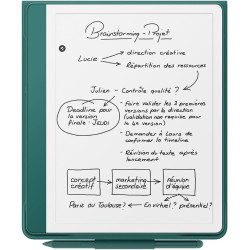 Brainstorming - Projet
Lucie
direction créative
Répartition des ressources
Julien - Contrôle qualité ?
Deadline pour
la version
finale : JEUDI
• Faire valider les 3 premières
versions par la direction
(validation non requise pour
la 4e version)
• Demander à Laura de
confirmer la timeline
• Révision du texte, après
lancement
concept
créatif
marketing
secondaire
réunion
d'équipe
Paris ou Toulouse?
En virtuel? présentiel?